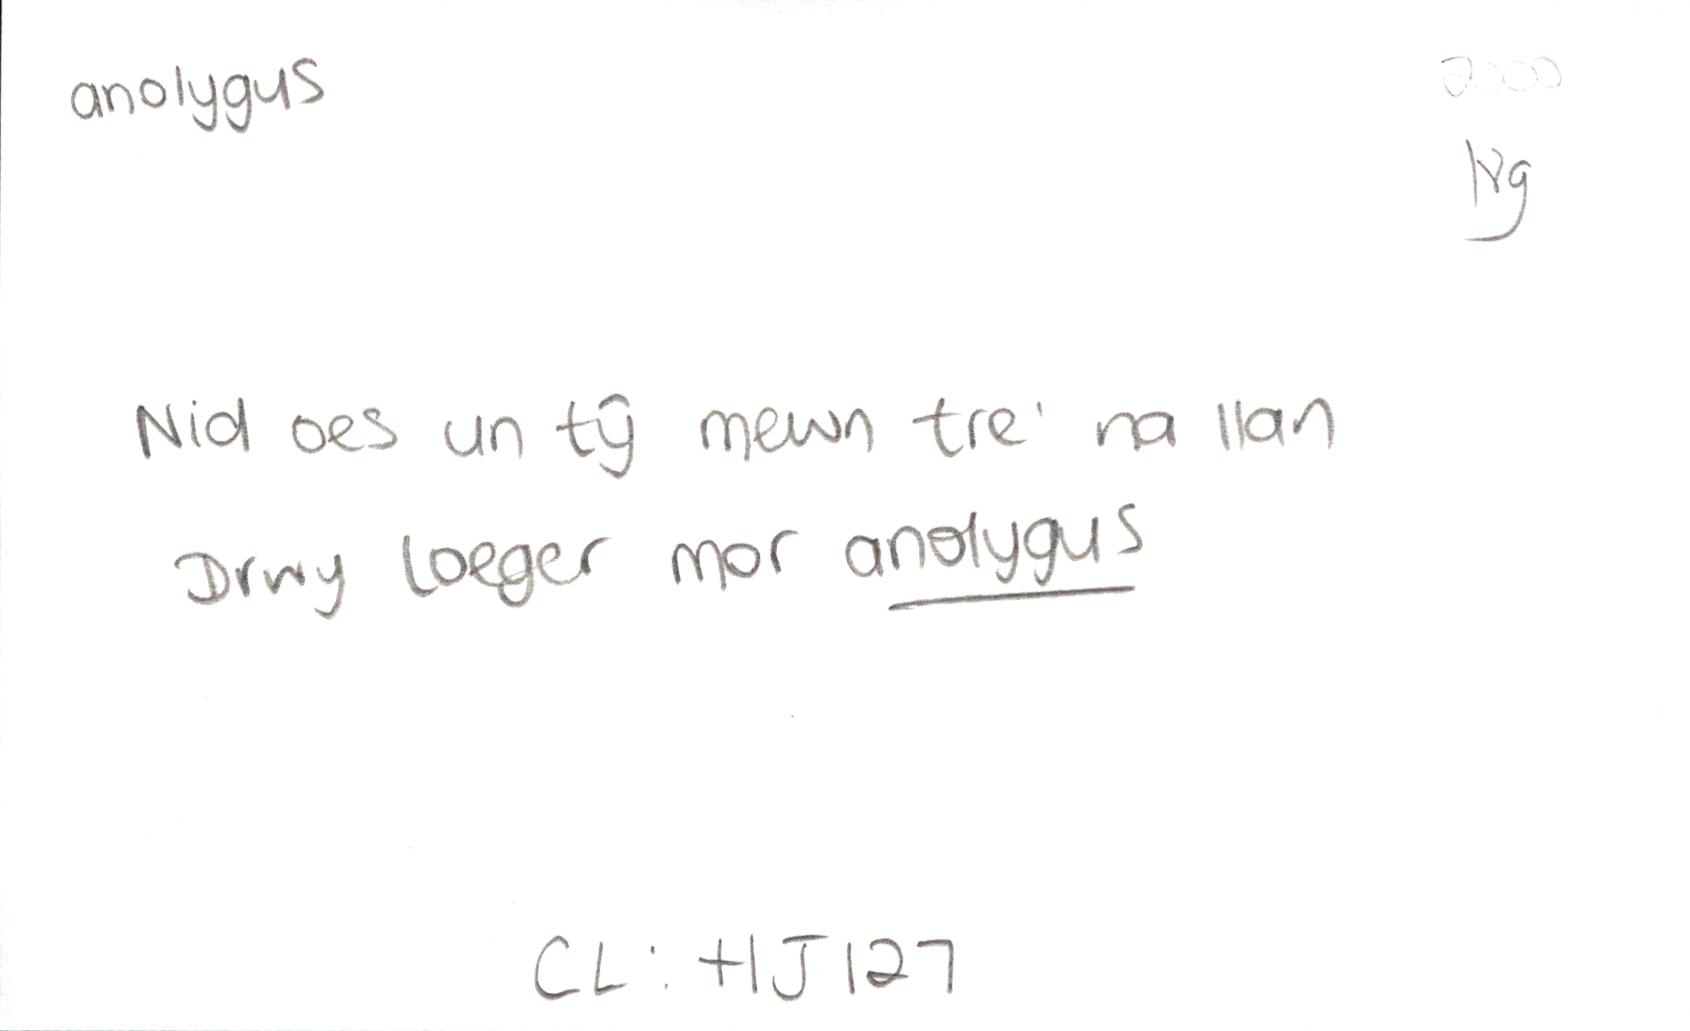 anolygus
Nid oes un tŷ mewn tre' na llan
Drwy loeger mor anolygus
CL: HJ127